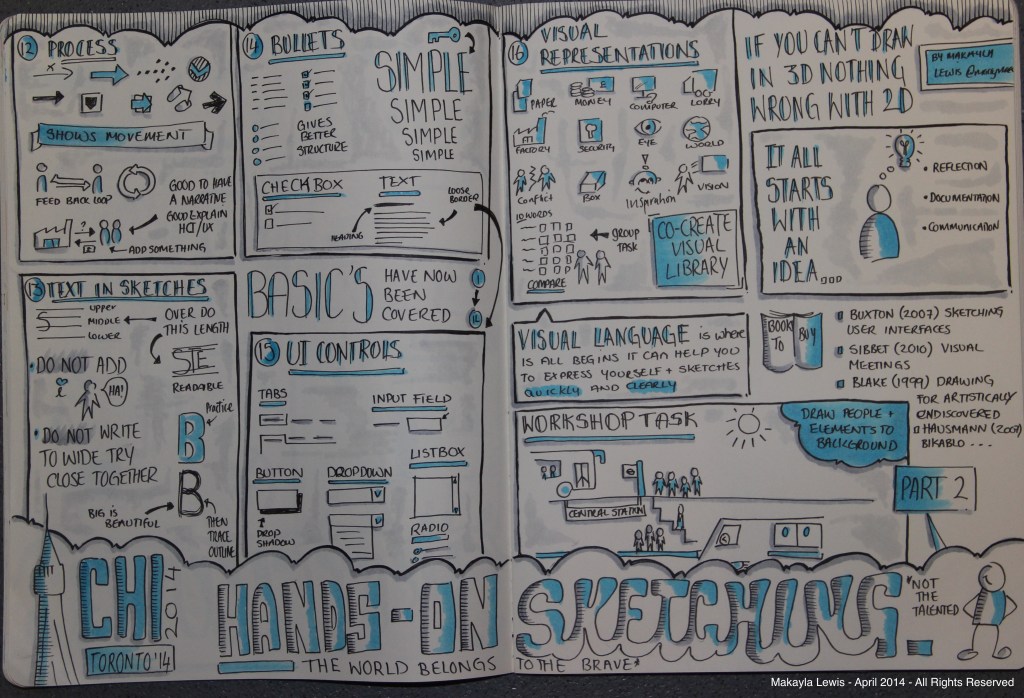 12 PROCESS
SHOWS MOVEMENT
FEED BACK LOOP
GOOD TO HAVE
A NARRATIVE
GOOD EXPLAIN
HCI/UX
?
ADD SOMETHING
13 TEXT IN SKETCHES
UPPER
MIDDLE
LOWER
OVER DO
THIS LENGTH
READABLE
• DO NOT ADD
i
HA!
• DO NOT WRITE
TO WIDE TRY
CLOSE TOGETHER
Practice
B
B
BIG IS
BEAUTIFUL
THEN
TRACE
OUTLINE
14 BULLETS
SIMPLE
SIMPLE
SIMPLE
SIMPLE
GIVES
BETTER
STRUCTURE
CHECKBOX
TEXT
LOOSE
BORDER
HEADING
BASIC'S
HAVE NOW
BEEN
COVERED
15 UI CONTROLS
TABS
INPUT FIELD
BUTTON
DROPDOWN
LISTBOX
DROP
SHADOW
RADIO
16 VISUAL
REPRESENTATIONS
PAPER
MONEY
COMPUTER
LORRY
FACTORY
SECURITY
EYE
WORLD
Conflict
BOX
Inspiration
VISION
10 WORDS
GROUP
TASK
COMPARE
CO-CREATE
VISUAL
LIBRARY
IF YOU CAN'T DRAW
IN 3D NOTHING
WRONG WITH 2D
BY MAKAYLA
LEWIS
IT ALL
STARTS
WITH
AN
IDEA...
• REFLECTION
• DOCUMENTATION
• COMMUNICATION
VISUAL LANGUAGE is where
IS ALL BEGINS IT CAN HELP YOU
TO EXPRESS YOURSELF + SKETCHES
QUICKLY AND CLEARLY
BOOK
TO
BUY
BUXTON (2007) SKETCHING
USER INTERFACES
SIBBET (2010) VISUAL
MEETINGS
BLAKE (1999) DRAWING
FOR ARTISTICALLY
UNDISCOVERED
HAUSMANN
BIKABLO ...
WORKSHOP TASK
DRAW PEOPLE +
ELEMENTS TO
BACKGROUND
CENTRAL STATION
PART 2
CHI
2014
TORONTO '14
HANDS-ON
SKETCHING
THE WORLD BELONGS
TO THE BRAVE*
*NOT
THE
TALENTED
Makayla Lewis - April 2014 - All Rights Reserved